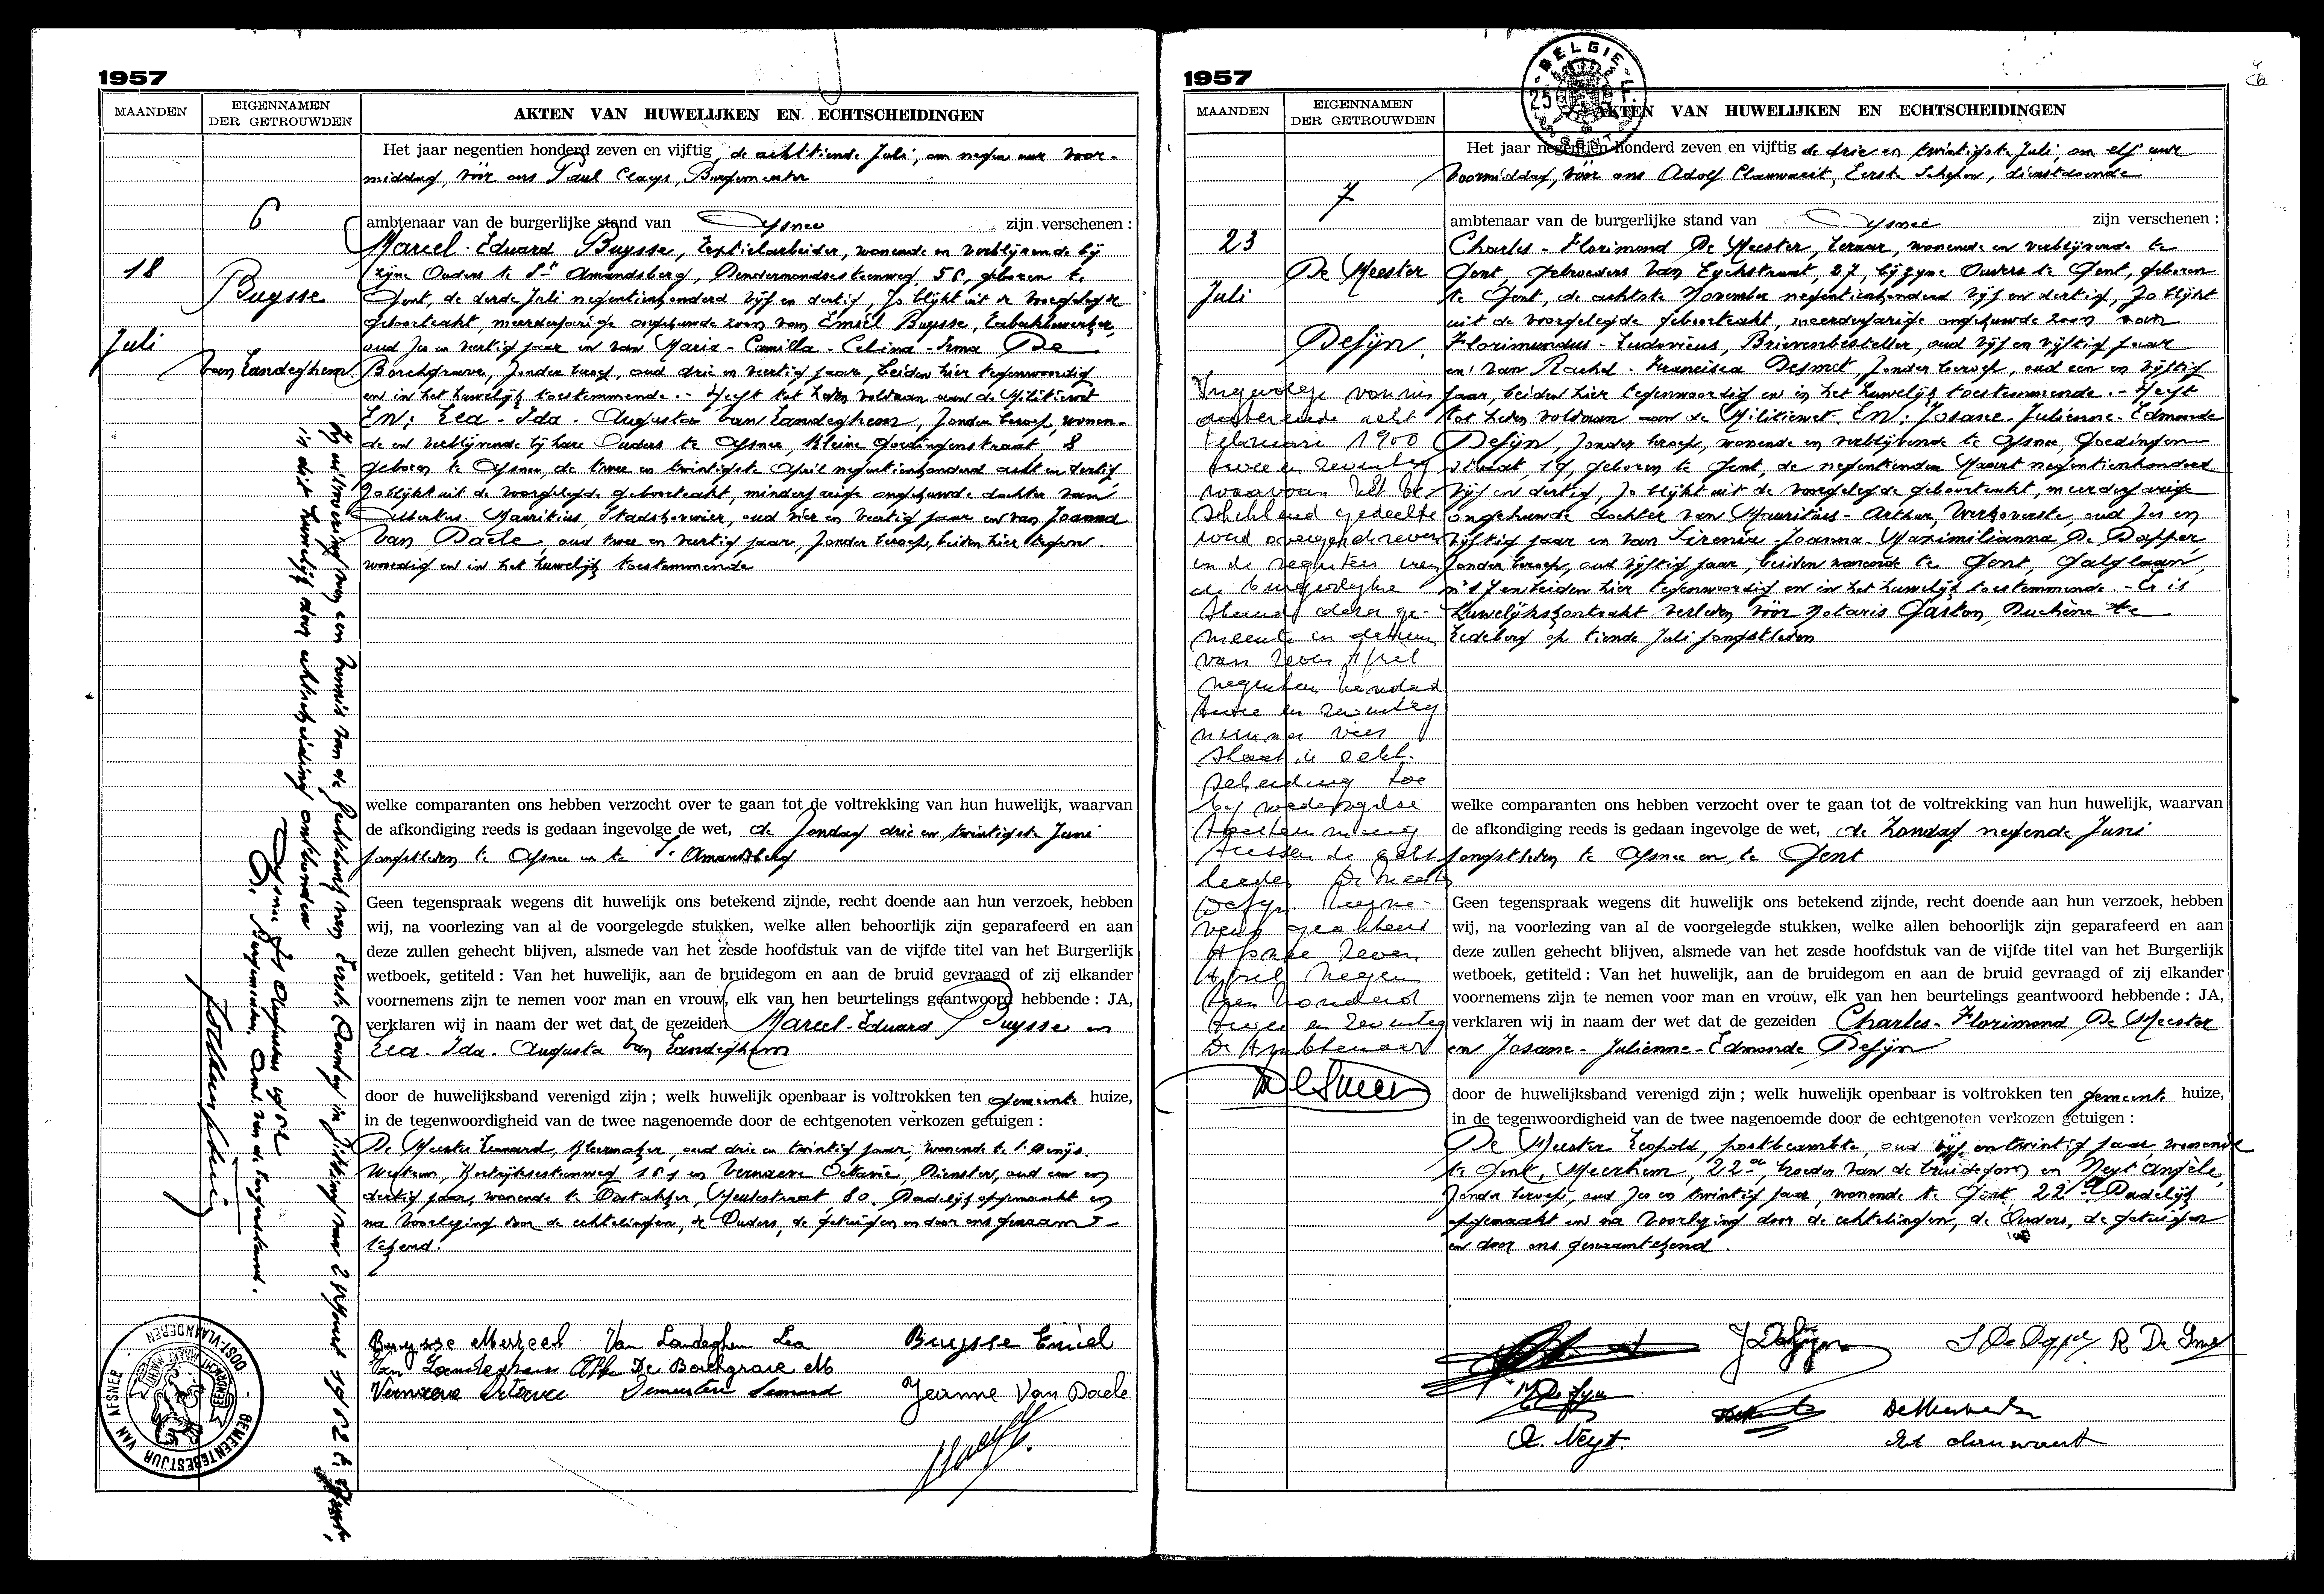 1957
MAANDEN
EIGENNAMEN
DER GETROUWDEN
AKTEN VAN HUWELIJKEN EN ECHTSCHEIDINGEN
6
18
Juli
Buysse
Van Landeghem
Het jaar negentien honderd zeven en vijftig, de achttiende Juli, om negen uur voor-
middag, vóór ons Paul Claeys, Burgemeester
ambtenaar van de burgerlijke stand van Afsnee zijn verschenen :
Marcel-Eduard Buysse, textielarbeider, wonende en verblijvende bij
zijne Ouders te St Amandsberg, Dendermondsesteenweg 56, geboren te
Gent, de derde Juli negentienhonderd vijf en dertig, zo blijkt uit de voorgelegde
geboorteakt, meerderjarige ongehuwde zoon van Emiel Buysse, tabakbewerker,
oud zes en veertig jaar en van Maria-Camilla-Celina-Irma De
Borchgrave, zonder beroep, oud drie en veertig jaar, beiden hier tegenwoordig
en in het huwelijk toestemmende. - Heeft tot heden voldaan aan de Militiewet
EN: Lea-Ida-Augusta Van Landeghem, zonder beroep, wonen-
de en verblijvende bij hare Ouders te Afsnee, Kleine Goedingenstraat 8
geboren te Afsnee, de twee en twintigste April negentienhonderd acht en dertig,
zo blijkt uit de voorgelegde geboorteakt, minderjarige ongehuwde dochter van
Albertus-Mauritius, Stadshovenier, oud vier en veertig jaar en van Joanna
Van Daele, oud twee en veertig jaar, zonder beroep, beiden hier tegen-
woordig en in het huwelijk toestemmende
welke comparanten ons hebben verzocht over te gaan tot de voltrekking van hun huwelijk, waarvan
de afkondiging reeds is gedaan ingevolge de wet, de Zondag drie en twintigste Juni
jongstleden te Afsnee en te St Amandsberg
Geen tegenspraak wegens dit huwelijk ons betekend zijnde, recht doende aan hun verzoek, hebben
wij, na voorlezing van al de voorgelegde stukken, welke allen behoorlijk zijn geparafeerd en aan
deze zullen gehecht blijven, alsmede van het zesde hoofdstuk van de vijfde titel van het Burgerlijk
wetboek, getiteld : Van het huwelijk, aan de bruidegom en aan de bruid gevraagd of zij elkander
voornemens zijn te nemen voor man en vrouw, elk van hen beurtelings geantwoord hebbende : JA,
verklaren wij in naam der wet dat de gezeiden Marcel-Eduard Buysse en
Lea-Ida-Augusta Van Landeghem
door de huwelijksband verenigd zijn ; welk huwelijk openbaar is voltrokken ten gemeente huize,
in de tegenwoordigheid van de twee nagenoemde door de echtgenoten verkozen getuigen :
De Meester Leonard, kleermaker, oud drie en twintig jaar, wonende te St Denijs-
Westrem, Kortrijksesteenweg en Vernaeve Octavie, Dienster, oud een en
dertig jaar, wonende te Oostakker, Meulestraat 80. Dadelijk opgemaakt en
na voorlezing door de echtelingen, de Ouders, de getuigen en door ons genaam-
tekend.
Buysse Marcel Van Landeghem Lea Buysse Emiel
Van Landeghem De Borchgrave M
Vernaeve Octavie Demeestere Leonard Jeanne Van Daele
Bij uitvoering van een vonnis van de Rechtbank van Eerste Aanleg in zitting van te Gent,
is dit huwelijk door echtscheiding ontbonden
Afsnee,
De Burgemeester, Amb. van de burgerstand.
GEMEENTEBESTUUR VAN AFSNEE
OOST-VLAANDEREN
1957
BELGIE
25 F.
MAANDEN
EIGENNAMEN
DER GETROUWDEN
AKTEN VAN HUWELIJKEN EN ECHTSCHEIDINGEN
7
23
Juli
De Meester
Defijn
Ingevolge vonnis
februari 1900
twee en zeventig
waarvan het be-
schikkend gedeelte
werd overgeschreven
in de registers van
de burgerlijke
stand dezer ge-
meente en datum
van zeven April
negentien honderd
twee en zeventig
nummer vier
staat de echt-
scheiding toe
bij wederzijdse
toestemming
tussen de echt-
lieden De Meester
Defijn
Afsnee zeven
April negen
tien honderd
twee en zeventig
De Ambtenaar
Het jaar negentien honderd zeven en vijftig de drie en twintigste Juli, om elf uur
voormiddag, vóór ons Adolf Clauwaert, Eerste Schepen, dienstdoende
ambtenaar van de burgerlijke stand van Afsnee zijn verschenen :
Charles-Florimond De Meester, leraar, wonende en verblijvende te
Gent, Gebroeders Van Eyckstraat, 27, bij zijne Ouders te Gent, geboren
te Gent, de achtste November negentienhonderd vijf en dertig, zo blijkt
uit de voorgelegde geboorteakt, meerderjarige ongehuwde zoon van
Florimundus-Ludovicus, Brievenbesteller, oud vijf en vijftig jaar
en van Rachel-Francisca Desmet, zonder beroep, oud een en vijftig
jaar, beiden hier tegenwoordig en in het huwelijk toestemmende. - Heeft
tot heden voldaan aan de Militiewet. EN: Josane-Julienne-Edmonde
Defijn, zonder beroep, wonende en verblijvende te Afsnee, Goedingen
straat, 19, geboren te Gent, de negentienden Maart negentienhonderd
vijf en dertig, zo blijkt uit de voorgelegde geboorteakt, meerderjarige
ongehuwde dochter van Mauritius-Arthur, Werkoverste, oud zes en
vijftig jaar en van Sirenia-Joanna-Maximilianna De Dapper,
zonder beroep, oud vijftig jaar, beiden wonende te Gent, Galglaan,
en beiden hier tegenwoordig en in het huwelijk toestemmende. - Er is
huwelijkskontrakt verleden vóór Notaris Gaston Duchène te
Ledeberg op tiende Juli jongstleden
welke comparanten ons hebben verzocht over te gaan tot de voltrekking van hun huwelijk, waarvan
de afkondiging reeds is gedaan ingevolge de wet, de Zondag negende Juni
jongstleden te Afsnee en te Gent
Geen tegenspraak wegens dit huwelijk ons betekend zijnde, recht doende aan hun verzoek, hebben
wij, na voorlezing van al de voorgelegde stukken, welke allen behoorlijk zijn geparafeerd en aan
deze zullen gehecht blijven, alsmede van het zesde hoofdstuk van de vijfde titel van het Burgerlijk
wetboek, getiteld : Van het huwelijk, aan de bruidegom en aan de bruid gevraagd of zij elkander
voornemens zijn te nemen voor man en vrouw, elk van hen beurtelings geantwoord hebbende : JA,
verklaren wij in naam der wet dat de gezeiden Charles-Florimond De Meester
en Josane-Julienne-Edmonde Defijn
door de huwelijksband verenigd zijn ; welk huwelijk openbaar is voltrokken ten gemeente huize,
in de tegenwoordigheid van de twee nagenoemde door de echtgenoten verkozen getuigen :
De Meester Leopold, postbeambte, oud vijf en twintig jaar, wonende
te Gent, Meerhem, 22a, broeder van de bruidegom en Neyt Angèle,
zonder beroep, oud zes en twintig jaar, wonende te Gent, 22a Dadelijk
opgemaakt en na voorlezing door de echtelingen, de Ouders, de getuigen
en door ons genaamtekend.
J Defijn S De Dapper R De Smet
A. Neyt. Ad clauwaert